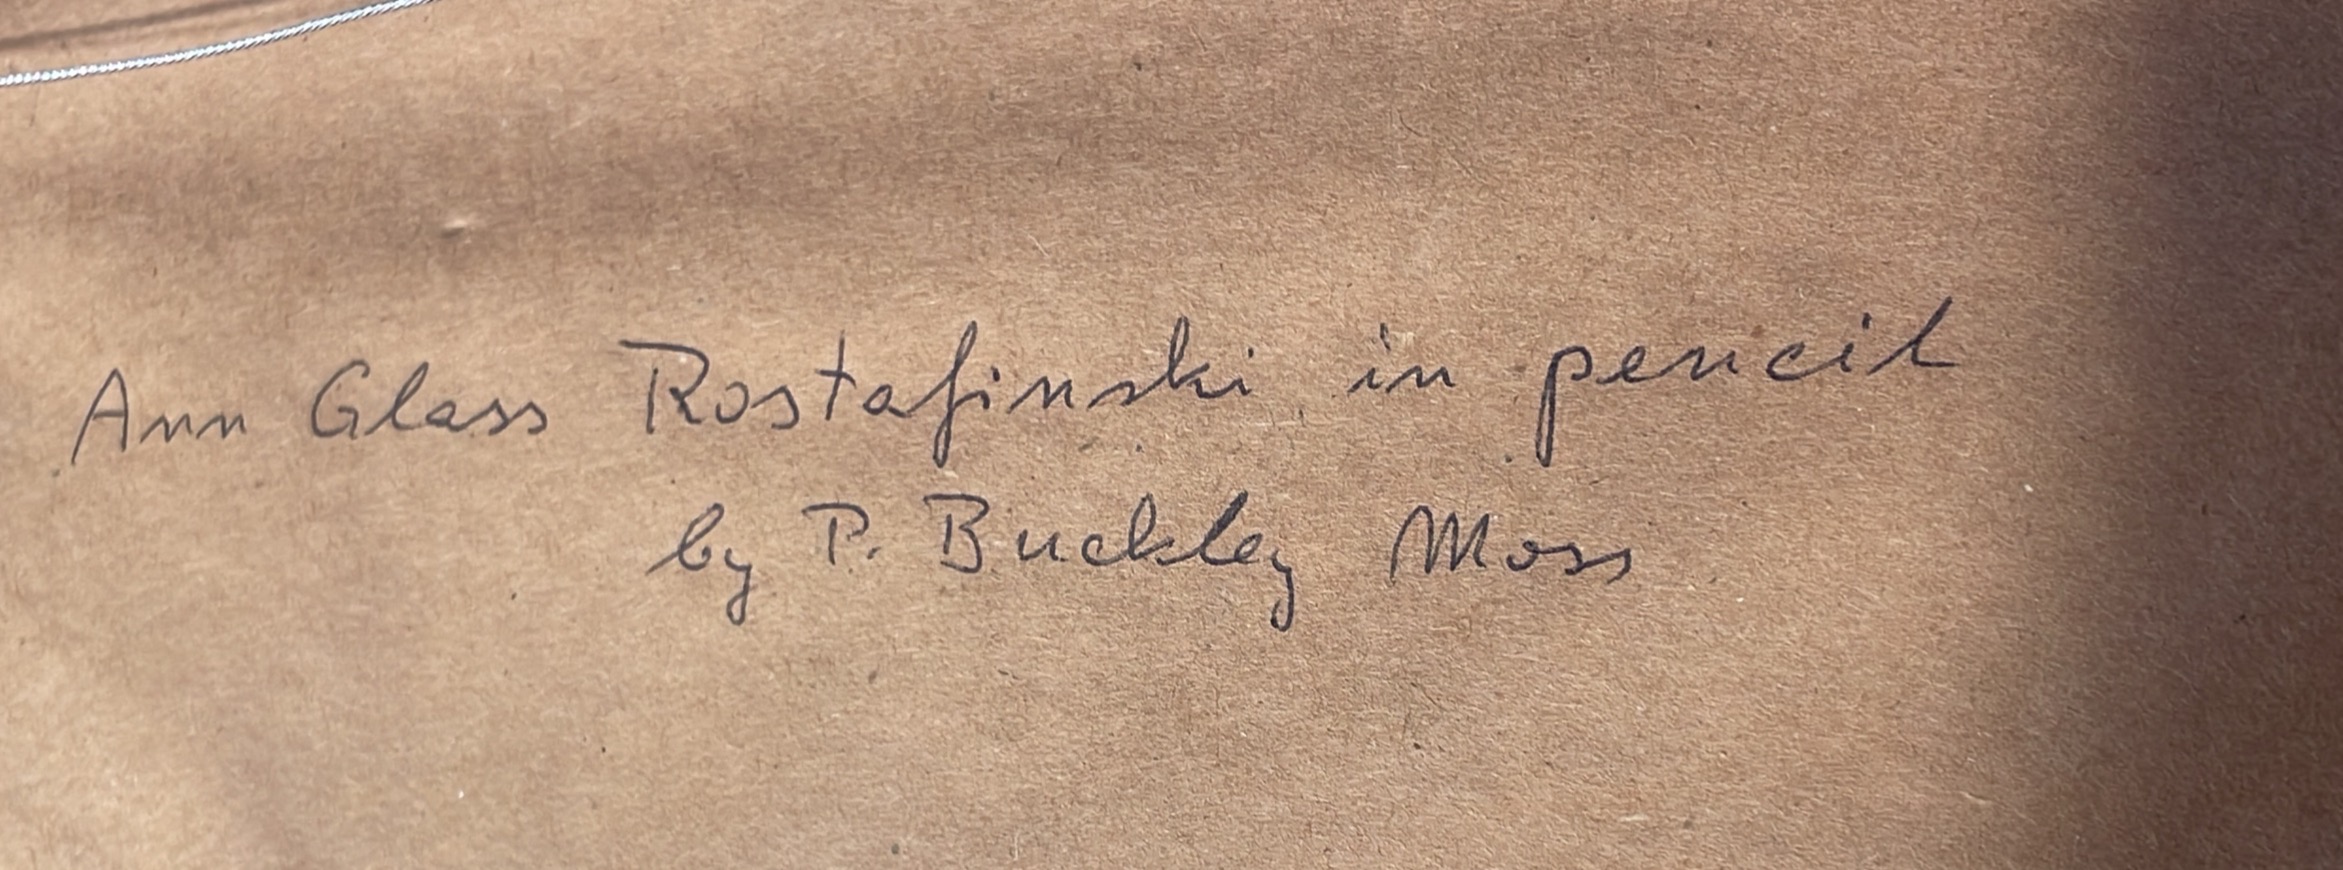 Ann Glass Rostafinski in pencil
by P. Buckley Moss